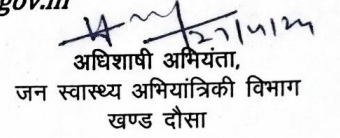 gov.in
27/11/24
अधिशाषी अभियंता,
जन स्वास्थ्य अभियांत्रिकी विभाग
खण्ड दौसा